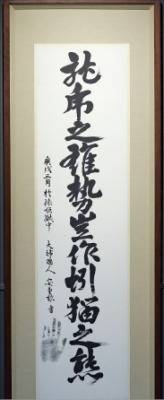 龍虎之雄勢豈作蚓猫之態
庚戌三月 於旅順獄中 大韓國人 安重根 書